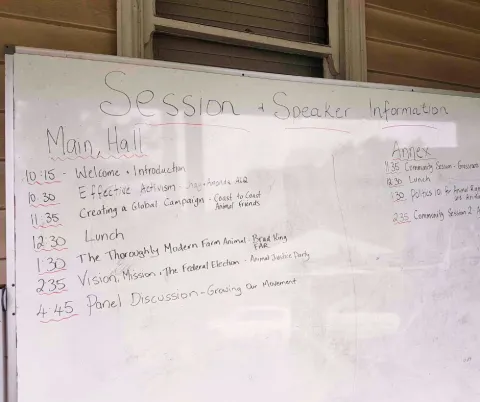 Session + Speaker Information
Main Hall
10:15 - Welcome + Introduction
10.30 Effective Activism -
11.35 Creating a Global Campaign - Coast to Coast
Animal Friends
12:30 Lunch
1:30 The Thoroughly Modern Farm Animal - Brad King
FAR
2.35 Vision, Mission + The Federal Election - Animal Justice Party
4.45 Panel Discussion - Growing Our Movement
Annex
11:35 Community Session - Grassroots
12:30 Lunch
1:30 Politics 101 for Animal
2.35 Community Session 2